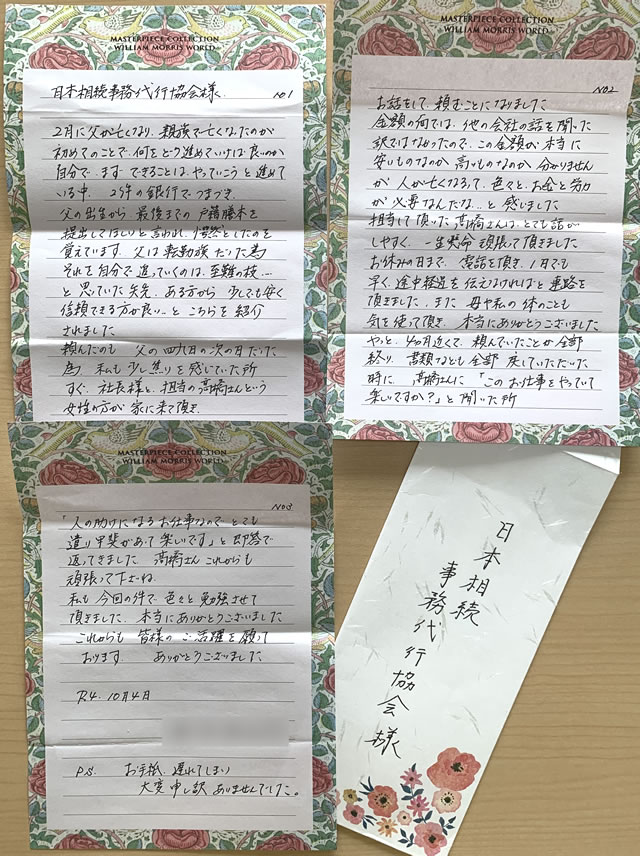 MASTERPIECE COLLECTION
WILLIAM MORRIS WORLD
日本相続事務代行協会様 no1
2月に父が亡くなり 親族で亡くなったのが
初めてのことで 何をどう進めていけば良いのか
自分で まず できることは やっていこうと進めて
いる中、2ヶ所の銀行でつまづき
父の出生から 最後までの 戸籍謄本を
提出してほしいと言われ、愕然としたのを
覚えています。父は転勤族だった為
それを自分で追っていくのは、至難の技…
と思っていた矢先、ある方から 少しでも安く
信頼できる方が良い…と こちらを紹介
されました
頼んだのも 父の四九日の次の日だった
為、私も少し焦りを感じていた所
すぐ、社長様と、担当の高橋さんという
女性の方が 家に来て頂き
MASTERPIECE COLLECTION
WILLIAM MORRIS WORLD
no2
お話をして、頼むことになりました
金額の面では、他の会社の話を聞いた
訳ではなかったので、この金額が本当に
安いものなのか 高いものなのか 分かりません
が 人が亡くなるって、色々と、お金と労力
が必要なんだな…と感じました
担当して頂いた 高橋さんは、とても話が
しやすく、一生懸命 頑張って頂きました
お休みの日まで、電話を頂き、1日でも
早く、途中経過を伝えなければと 連絡を
頂きました。また 母や私の体のことも
気を使って頂き、本当にありがとうございました
やっと、4ヶ月近くで、頼んでいたことが全部
終り、書類なども 全部 戻していただいた
時に、高橋さんに「このお仕事をやっていて
楽しいですか?」と聞いた所
MASTERPIECE COLLECTION
WILLIAM MORRIS WORLD
no3
「人の助けになるお仕事なので とても
遣り甲斐があって 楽しいです」と即答で
返ってきました 高橋さん これからも
頑張って下さいね
私も 今回の件で 色々と 勉強させて
頂きました、本当にありがとうございました
これからも 皆様の ご活躍を願って
おります ありがとうございました
R4. 10月4日
P.S. お手紙、遅れてしまい
大変申し訳ありませんでした。
日本相続
事務代行協会様